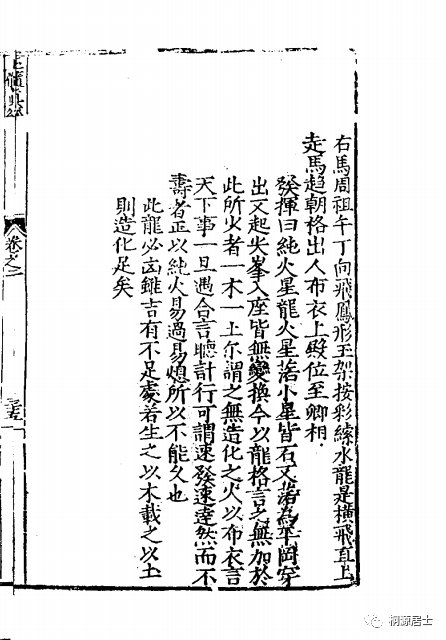 右馬周祖午丁向飛鳳形玉架按彩絲水龍是橫飛直上
走馬趨朝格出人布衣上殿位至卿相
發揮曰純火星龍火星落小星皆石又落為平岡穿
出又起尖峯入座皆無變換今以龍格言之無加於
此所少者一木一土尔謂之無造化之火以布衣言
天下事一旦遇合言聽計行可謂速發速達然而不
壽者正以純火易過易熄所以不能久也
此龍必凶雖吉有不足處若生之以木載之以土
則造化足矣
卷之二
三五
桐源居士